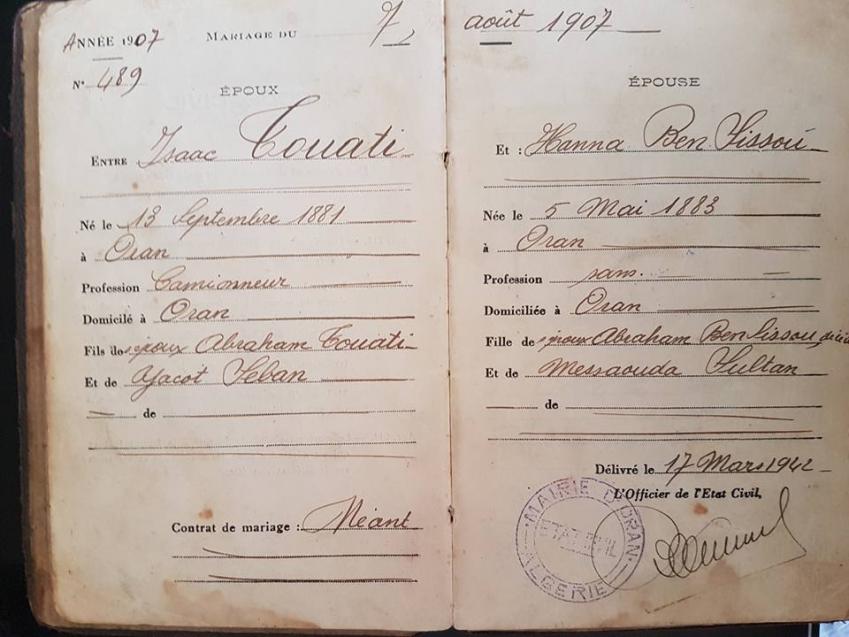 ANNÉE 1907 MARIAGE DU 7
N° 489
ÉPOUX
ENTRE Isaac Touati
Né le 13 Septembre 1881
à Oran
Profession Camionneur
Domicilé à Oran
Fils de époux Abraham Touati
Et de Yacot Seban
de
Contrat de mariage : Néant
août 1907
ÉPOUSE
Et : Hanna Ben Sissou
Née le 5 Mai 1883
à Oran
Profession sans.
Domiciliée à Oran
Fille de époux Abraham Ben Sissou
Et de Messaouda Sultan
de
Délivré le 17 Mars 1942
L'Officier de l'Etat Civil,
MAIRIE D'ORAN
ETAT CIVIL
ALGERIE